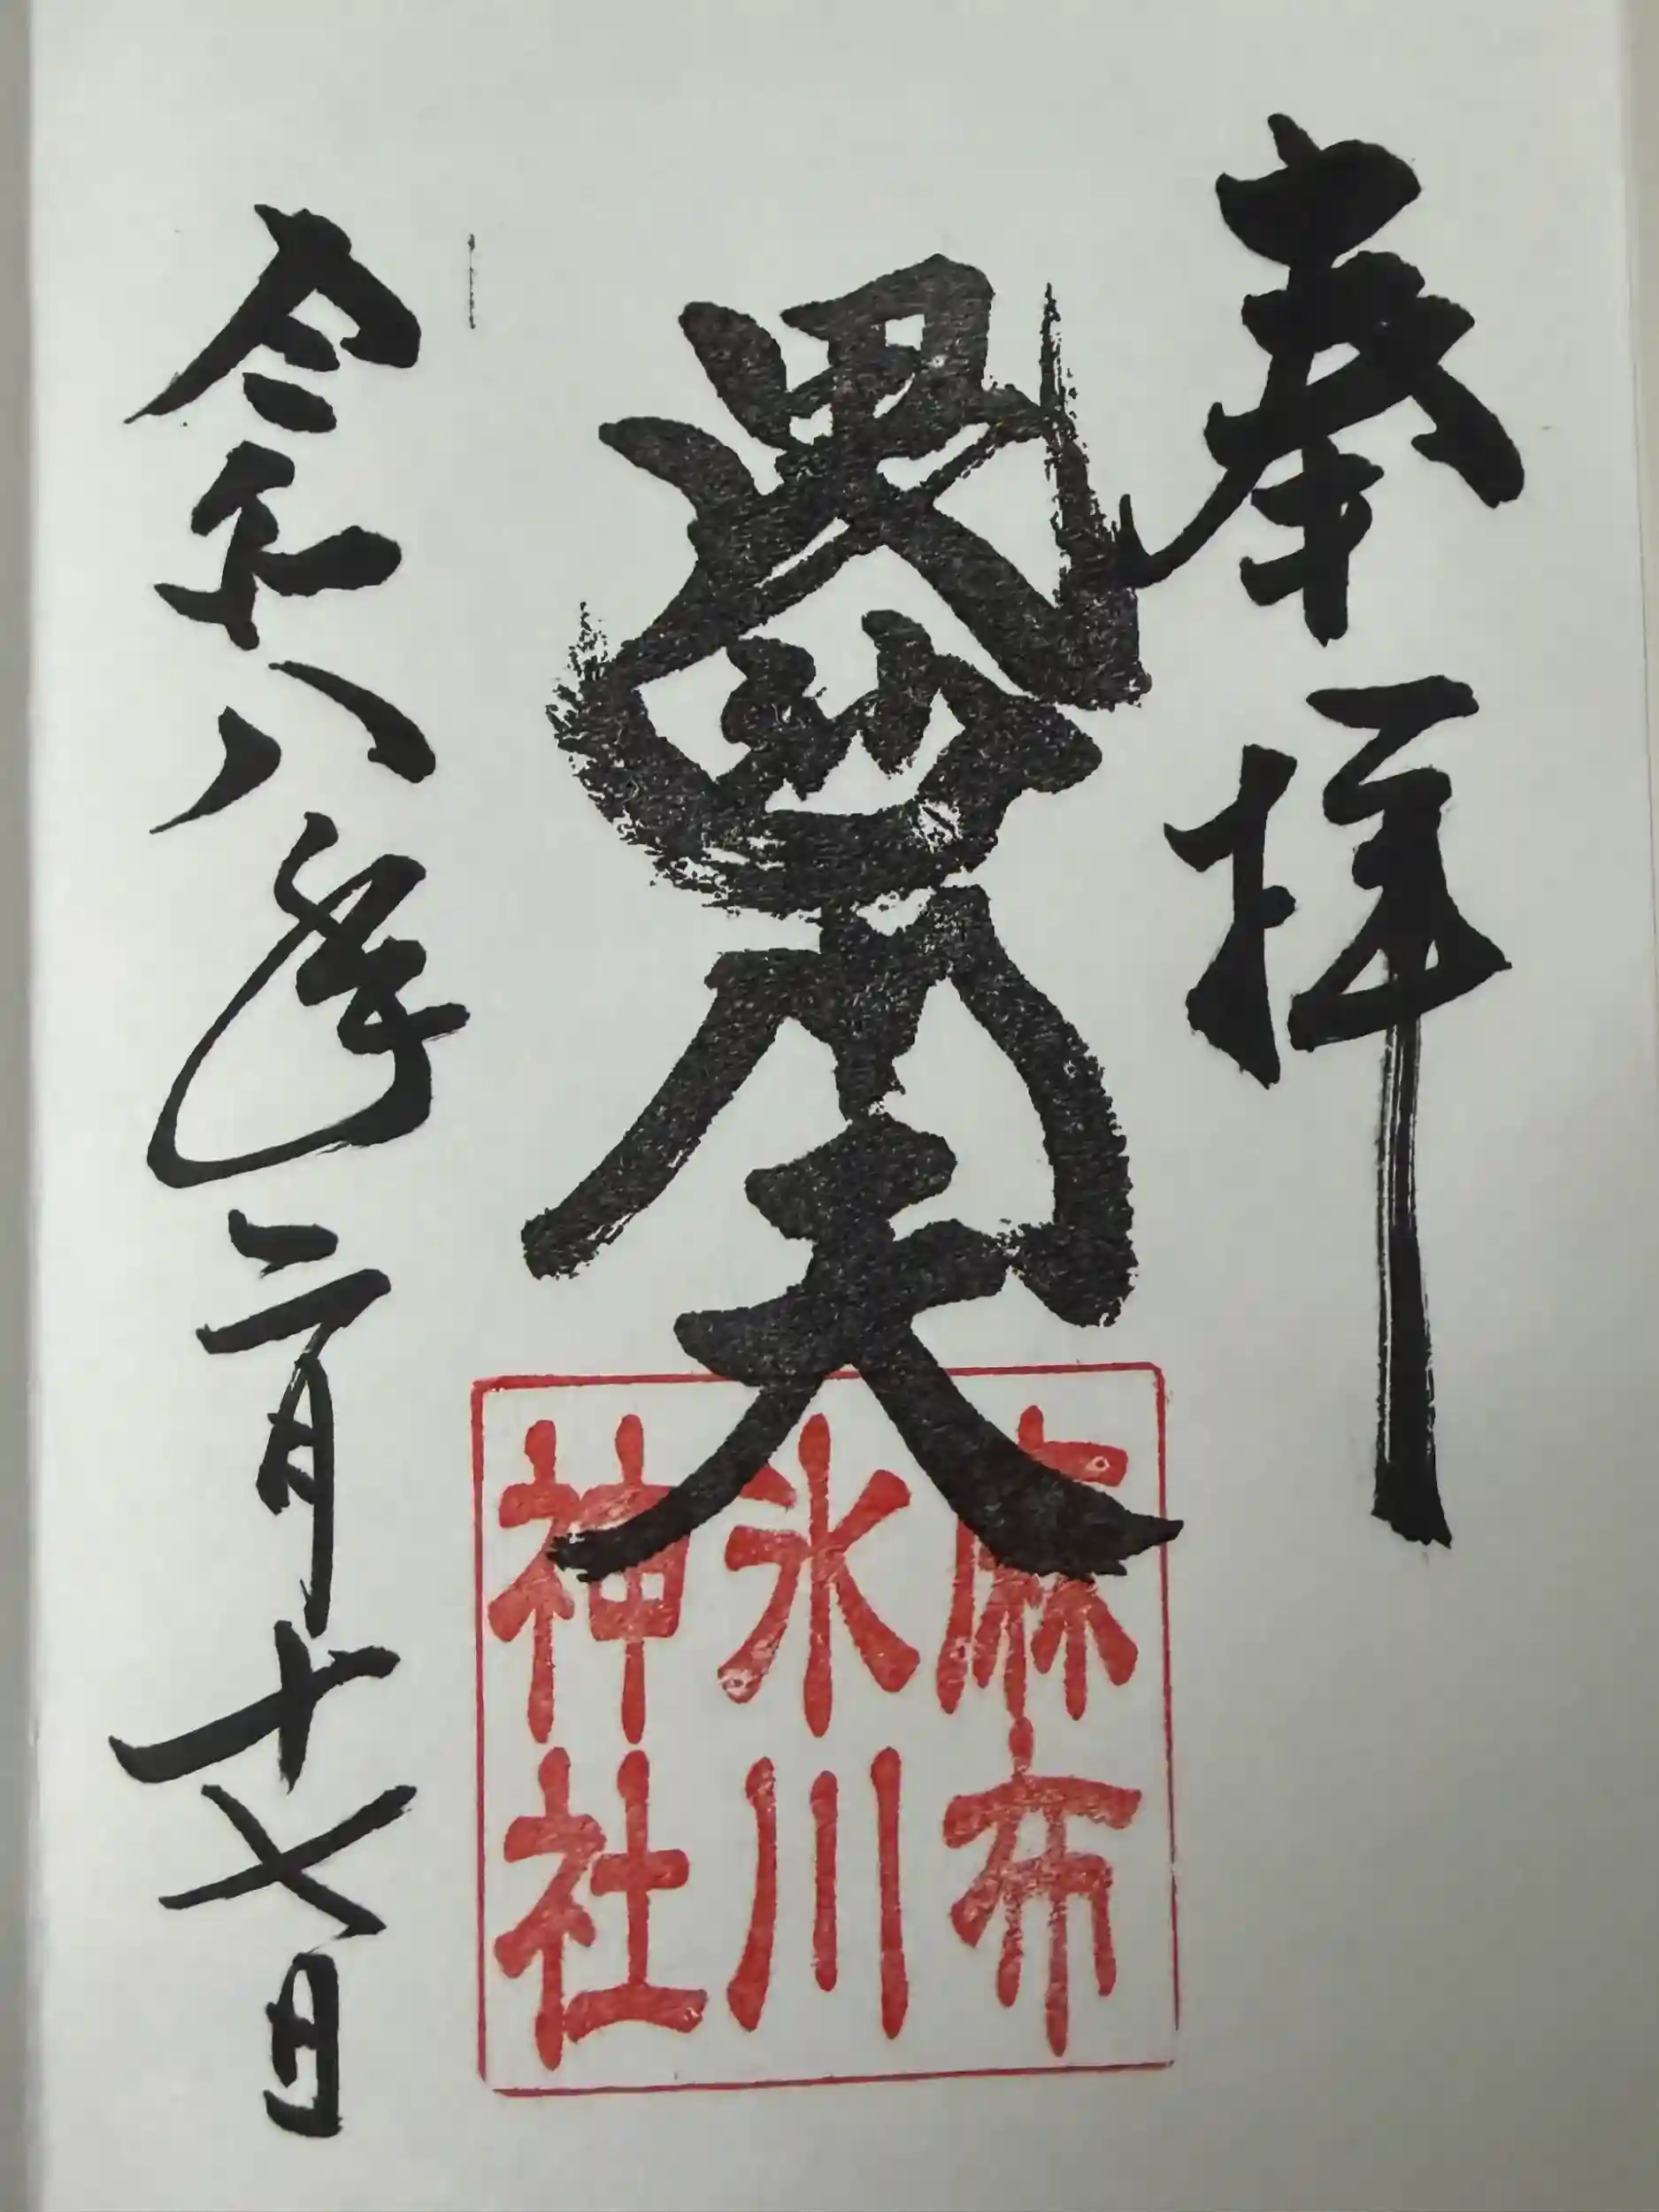 奉拝
麻布
氷川
神社
令和八年二月十七日